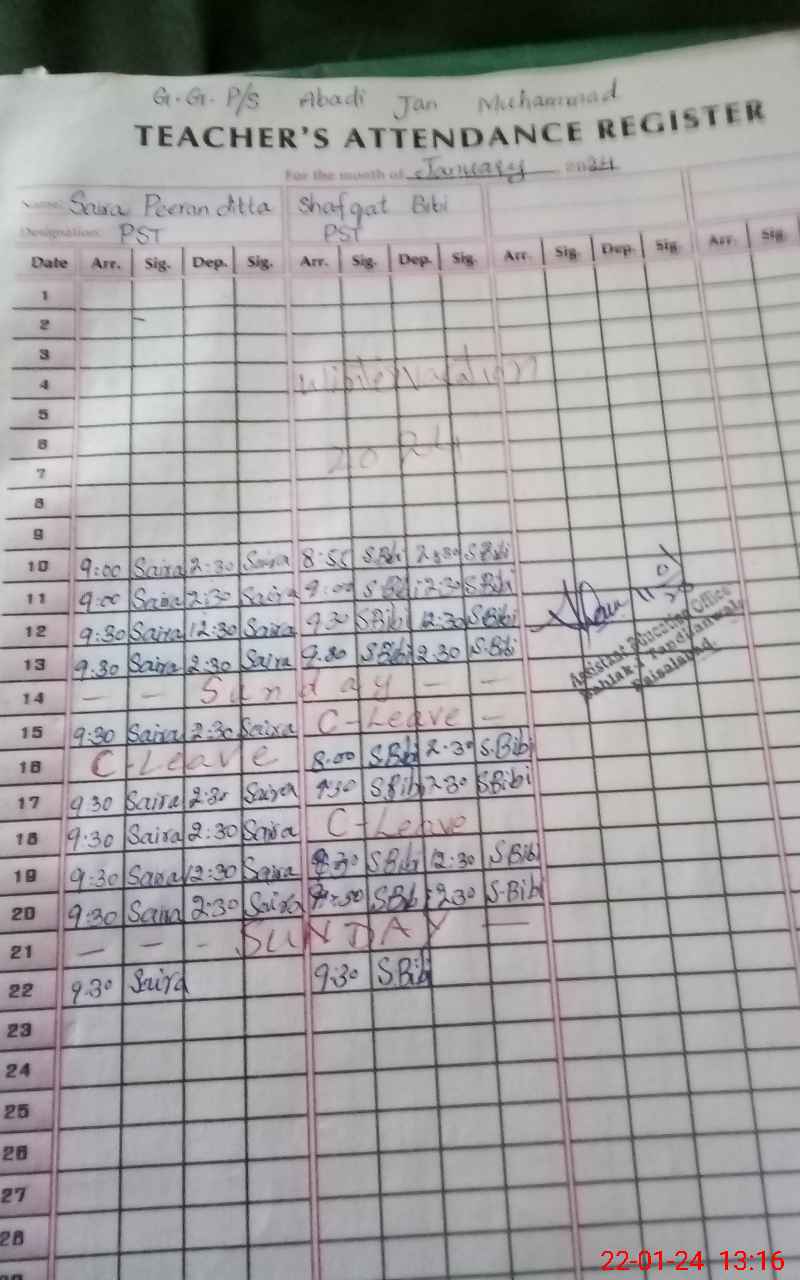 G.G. P/S Abadi Jan Muhammad
TEACHER'S ATTENDANCE REGISTER
For the month of January 2024
Name: Saira Peeran ditta Shafqat Bibi
Designation: PST PST
Date Arr. Sig. Dep. Sig. Arr. Sig. Dep. Sig. Arr. Sig. Dep. Sig. Arr. Sig.
1
2
3
4 Winter Vacation
5
6
7 2024
8
9
10 9:00 Saira 2:30 Saira 8:50 S.Bibi 2:30 S.Bibi
11 9:00 Saira 2:30 Saira 9:00 S.Bibi 2:30 S.Bibi
12 9:30 Saira 12:30 Saira 9.30 S.Bibi 12:30 S.Bibi
13 9.30 Saira 2:30 Saira 9.30 S.Bibi 2.30 S.Bibi
Assistant Education Office
Tandlianwala
Faisalabad.
14 — — Sunday — —
15 9:30 Saira 2:30 Saira C-Leave —
16 C-Leave 8.00 S.Bibi 2.30 S.Bibi
17 9.30 Saira 2:30 Saira 9:30 S.Bibi 2.30 S.Bibi
18 9.30 Saira 2:30 Saira C-Leave
19 9:30 Saira 12:30 Saira S.Bibi 12:30 S.Bibi
20 9:30 Saira 2:30 Saira S.Bibi 2:30 S.Bibi
21 — — - SUNDAY —
22 9.30 Saira 9:30 S.Bibi
23
24
25
26
27
28
22-01-24 13:16